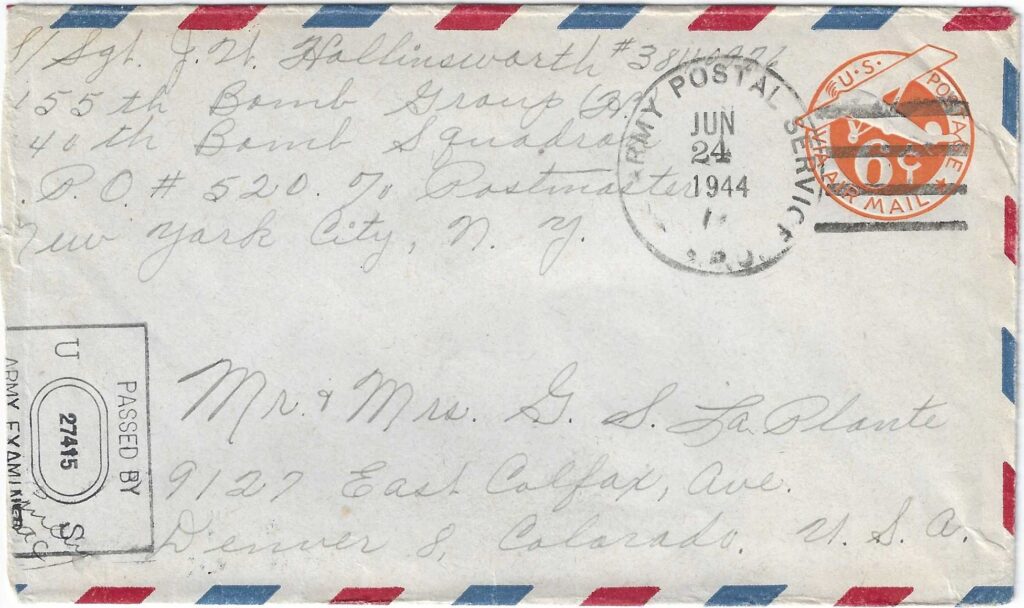 S/Sgt. J. W. Hollinsworth
455th Bomb Group
40th Bomb Squadron
P.O. # 520. % Postmaster
New York City, N. Y.
ARMY POSTAL SERVICE
JUN
24
1944
U.S. POSTAGE
VIA AIR MAIL
6¢
PASSED BY
U S
27415
ARMY EXAMINER
Mr. & Mrs. G. S. La Plante
9127 East Colfax, Ave.
Denver 8, Colorado. U. S. A.